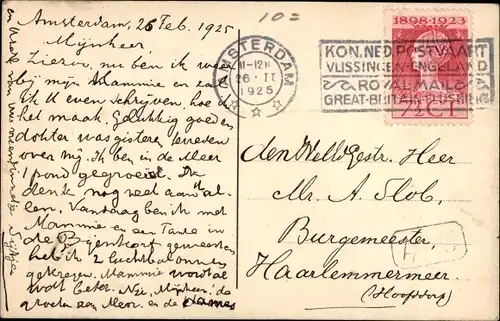 Amsterdam, 26 Feb. 1925
Mijnheer,
Ziezoo, nu ben ik weer
bij mijn Mammie en zal
ik U even schrijven, hoe ik
het maak. Gelukkig goed en
dokter was gisteren tevreden
over mij. Ik ben in de Meer
1 pond gegroeid. Ik
denk nog veel aan U al-
len. Vandaag ben ik met
Mammie en een Tante in
de Bijenkorf geweest en
heb ik 2 luchtballonnen
gekregen. Mammie wordt al
wat beter. Nu, Mijnheer, de
groeten aan Mevr. en de dames
en van uw
10=
AMSTERDAM
11-12N
26.II
1925
KON. NED. POSTVAART
VLISSINGEN-ENGELAND
ROYAL MAIL
GREAT-BRITAIN-FLUSHING
1898-1923
7½ CT
den WelEd.Gestr. Heer
Mr. A. Slob,
Burgemeester,
Haarlemmermeer
(Hoofddorp)